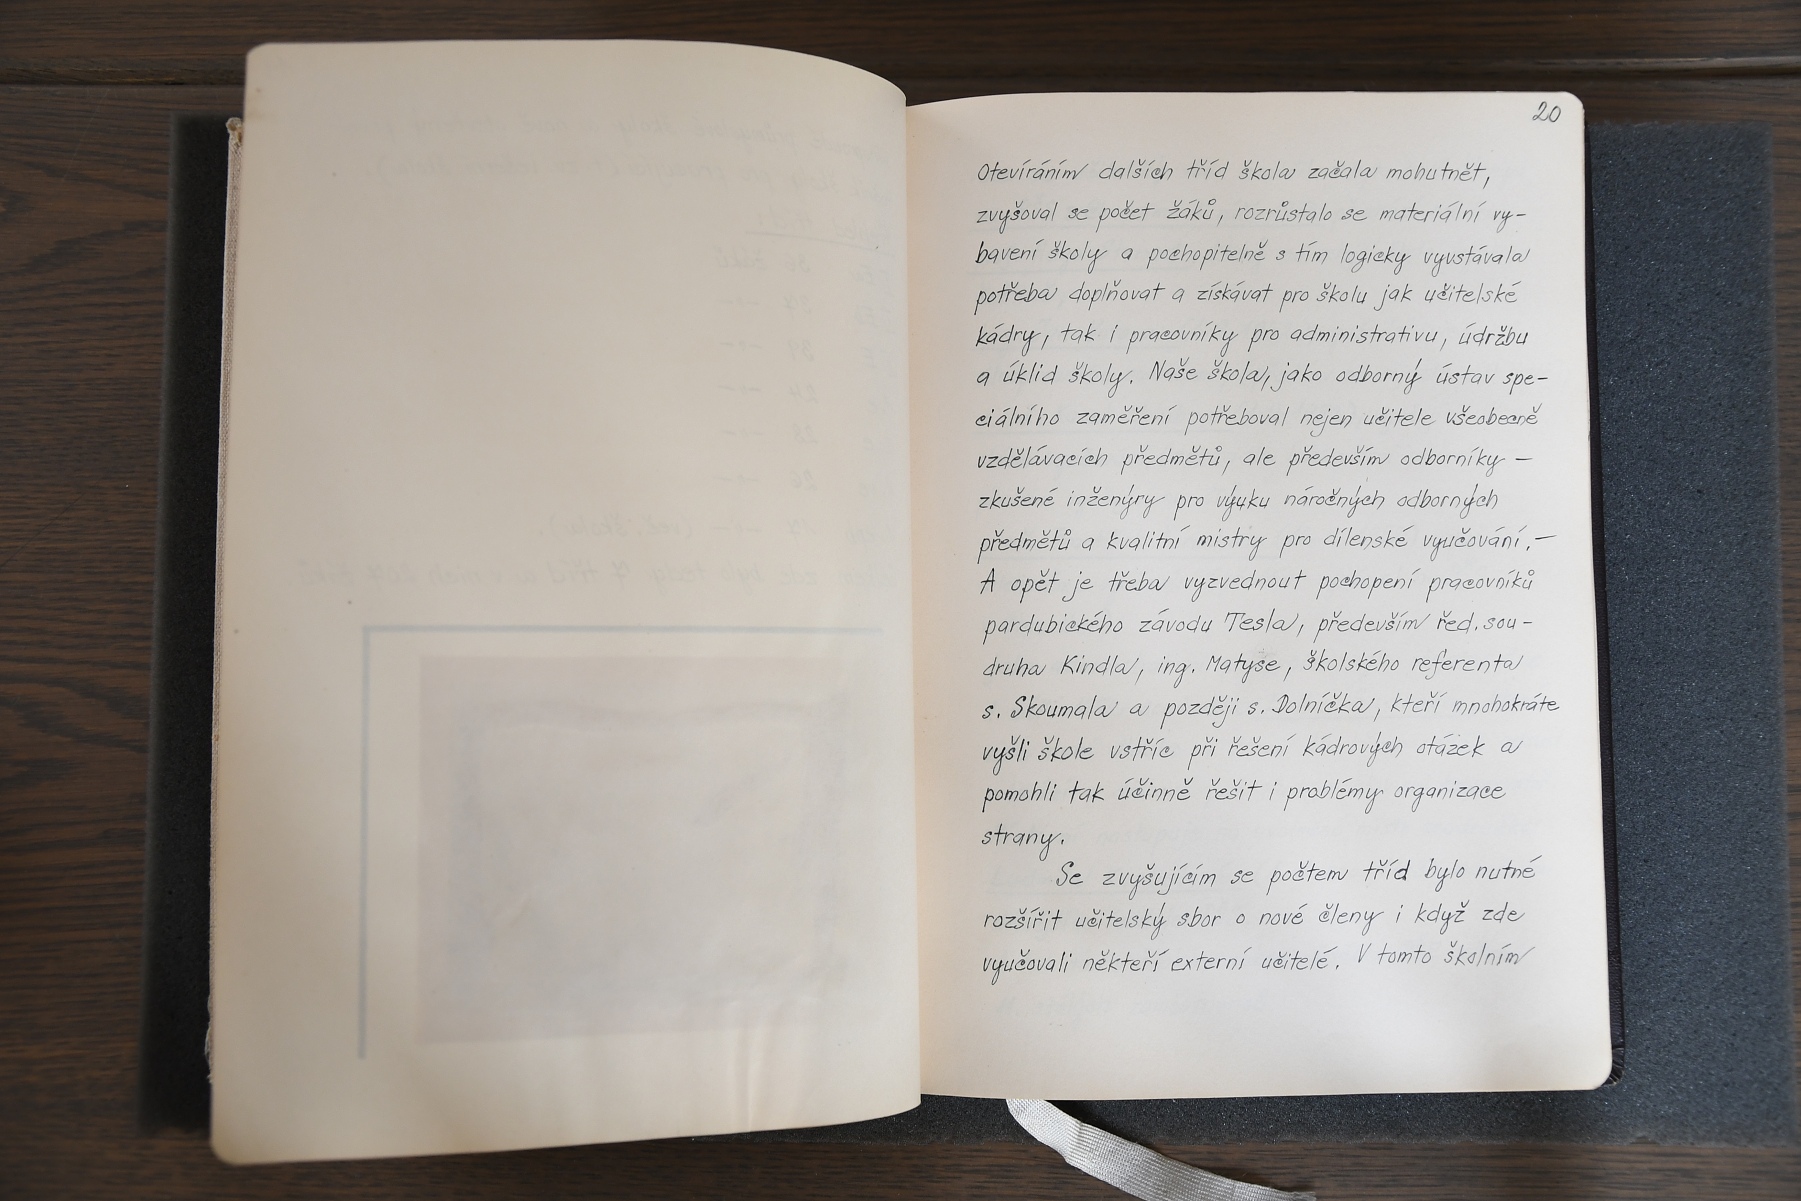 20
Otevíráním dalších tříd škola začala mohutnět,
zvyšoval se počet žáků, rozrůstalo se materiální vy-
bavení školy a pochopitelně s tím logicky vyvstávala
potřeba doplňovat a získávat pro školu jak učitelské
kádry, tak i pracovníky pro administrativu, údržbu
a úklid školy. Naše škola, jako odborný ústav spe-
ciálního zaměření potřeboval nejen učitele všeobecně
vzdělávacích předmětů, ale především odborníky -
zkušené inženýry pro výuku náročných odborných
předmětů a kvalitní mistry pro dílenské vyučování.-
A opět je třeba vyzvednout pochopení pracovníků
pardubického závodu Tesla, především řed. sou-
druha Kindla, ing. Matyse, školského referenta
s. Skoumala a později s. Dolníčka, kteří mnohokráte
vyšli škole vstříc při řešení kádrových otázek a
pomohli tak účinně řešit i problémy organizace
strany.
Se zvyšujícím se počtem tříd bylo nutné
rozšířit učitelský sbor o nové členy i když zde
vyučovali někteří externí učitelé. V tomto školním